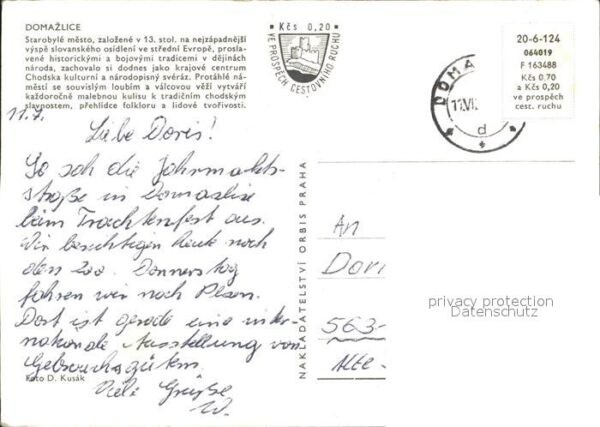 DOMAŽLICE
Starobylé město, založené v 13. stol. na nejzápadnější
výspě slovanského osídlení ve střední Evropě, prosla-
vené historickými a bojovými tradicemi v dějinách
národa, zachovalo si dodnes jako krajové centrum
Chodska kulturní a národopisný svéráz. Protáhlé ná-
městí se souvislým loubím a válcovou věží vytváří
každoročně malebnou kulisu k tradičním chodským
slavnostem, přehlídce folkloru a lidové tvořivosti.
Kčs 0,20
VE PROSPĚCH CESTOVNÍHO RUCHU
DOMA
d
20-6-124
064019
F 163488
Kčs 0.70
a Kčs 0,20
ve prospěch
cest. ruchu
11.7.
Liebe Doris!
So sah die Jahrmarkts-
straße in Domazlice
beim Trachtenfest aus.
Wir besichtigen heute noch
den Zoo. Donnerstag
fahren wir nach Plzen.
Dort ist gerade eine inter-
nationale Ausstellung von
Gebrauchsgütern.
Viele Grüße
W.
Foto D. Kusák
NAKLADATELSTVÍ ORBIS PRAHA
An
Dori
563-
Alte-
privacy protection
Datenschutz